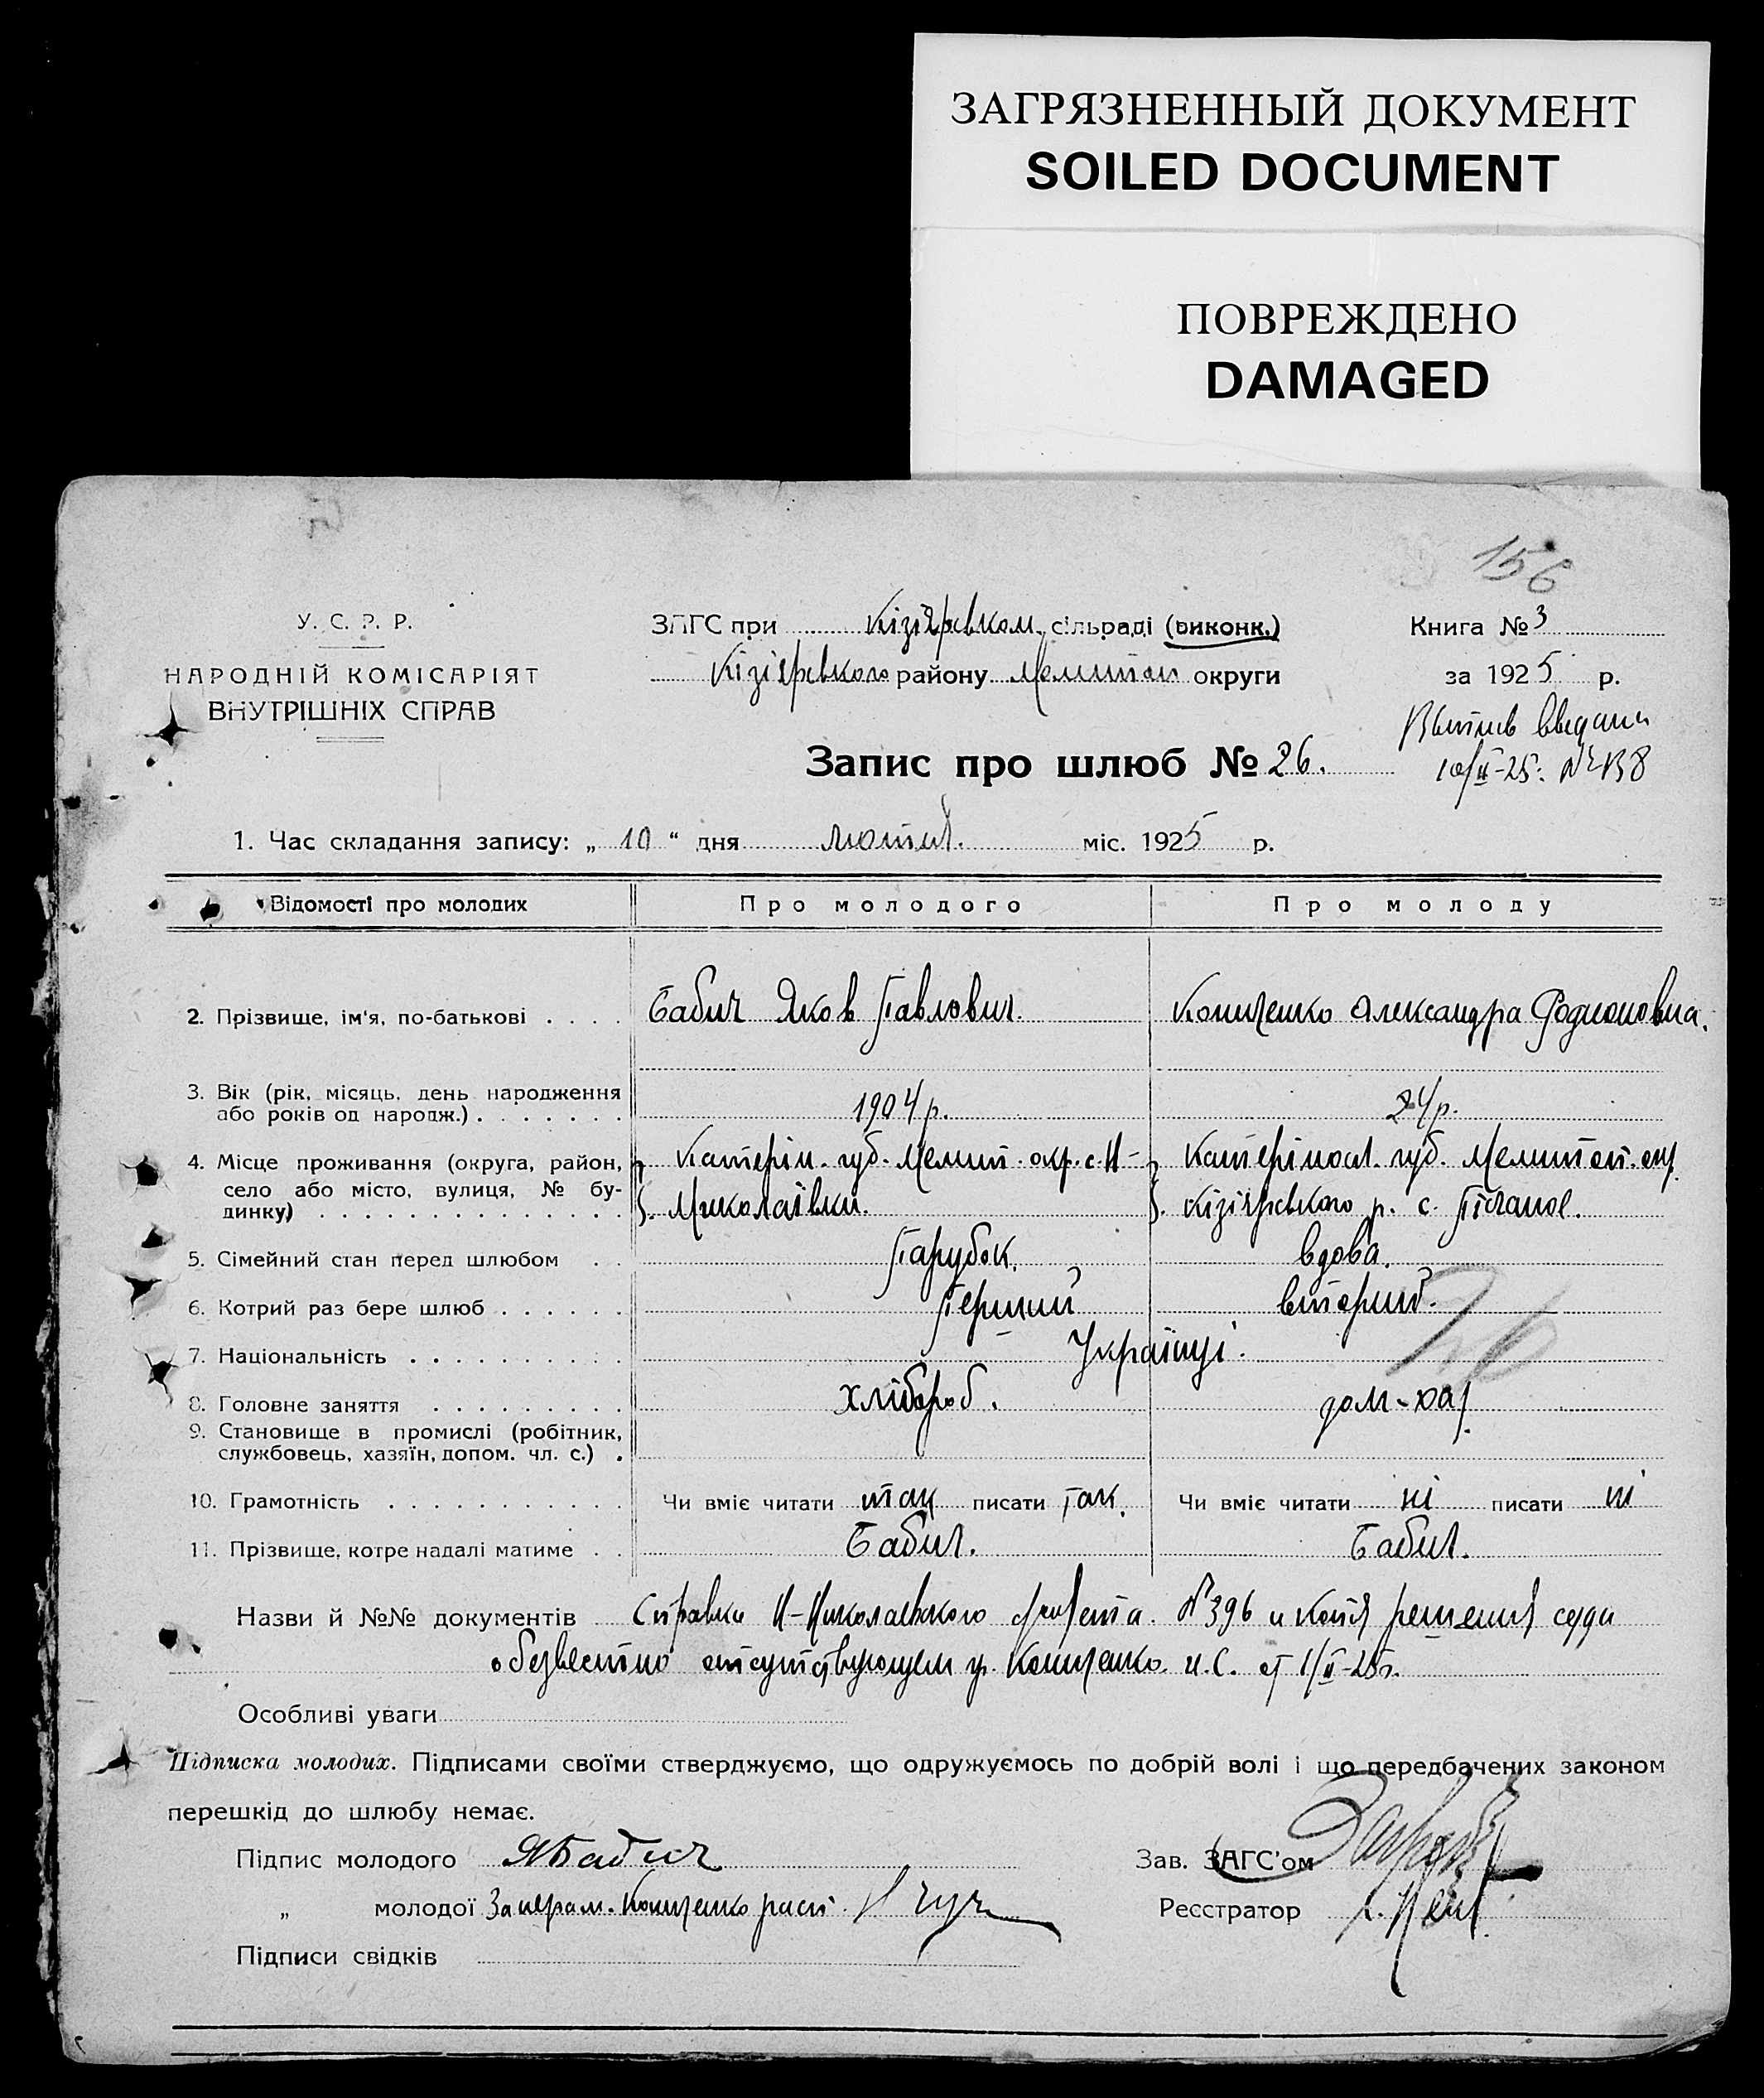 ЗАГРЯЗНЕННЫЙ ДОКУМЕНТ
SOILED DOCUMENT
ПОВРЕЖДЕНО
DAMAGED
156
У. С. Р. Р.
НАРОДНІЙ КОМІСАРІЯТ
ВНУТРІШНІХ СПРАВ
ЗАГС при Кізіярвком. сільраді (виконк.)
Кізіярвкого району Мелитоп округи
Книга № 3
за 1925 р.
10/II-25. №
Запис про шлюб № 26.
1. Час складання запису: „ 10 “ дня міс. 1925 р.
Відомості про молодих Про молодого Про молоду
2. Прізвище, ім'я, по-батькові . . . . Бабич Яков Павлович. Александра Родионовна.
3. Вік (рік, місяць, день народження
або років од народж.) . . . . . . . 1904 р. 24 р.
4. Місце проживання (округа, район, Катерін. губ. Мелит. окр. с. Н- Катеріносл. губ. Мелитоп. окр.
село або місто, вулиця, № бу-
динку) . . . . . . . . . . . . . . Миколаївки. Кізіярського р. с. Пісчаное.
5. Сімейний стан перед шлюбом . . Парубок. вдова.
6. Котрий раз бере шлюб . . . . . . Перший
26
7. Національність . . . . . . . . . . Українці.
8. Головне заняття . . . . . . . . . хлібороб. дом-хаз.
9. Становище в промислі (робітник,
службовець, хазяїн, допом. чл. с.) .
10. Грамотність . . . . . . . . . . . Чи вміє читати так писати так. Чи вміє читати ні писати ні
11. Прізвище, котре надалі матиме . . Бабич. Бабич.
Назви й №№ документів Справка Н-Николаевского № 396 и копія решения суда
о безвестно отсутствующем гр. И. С. от 1/II-25г.
Особливі уваги
Підписка молодих. Підписами своїми стверджуємо, що одружуємось по добрій волі і що передбачених законом
перешкід до шлюбу немає.
Підпис молодого ЯБабич
Зав. ЗАГС'ом
„ молодої За неграм. расп.
Реєстратор
Підписи свідків